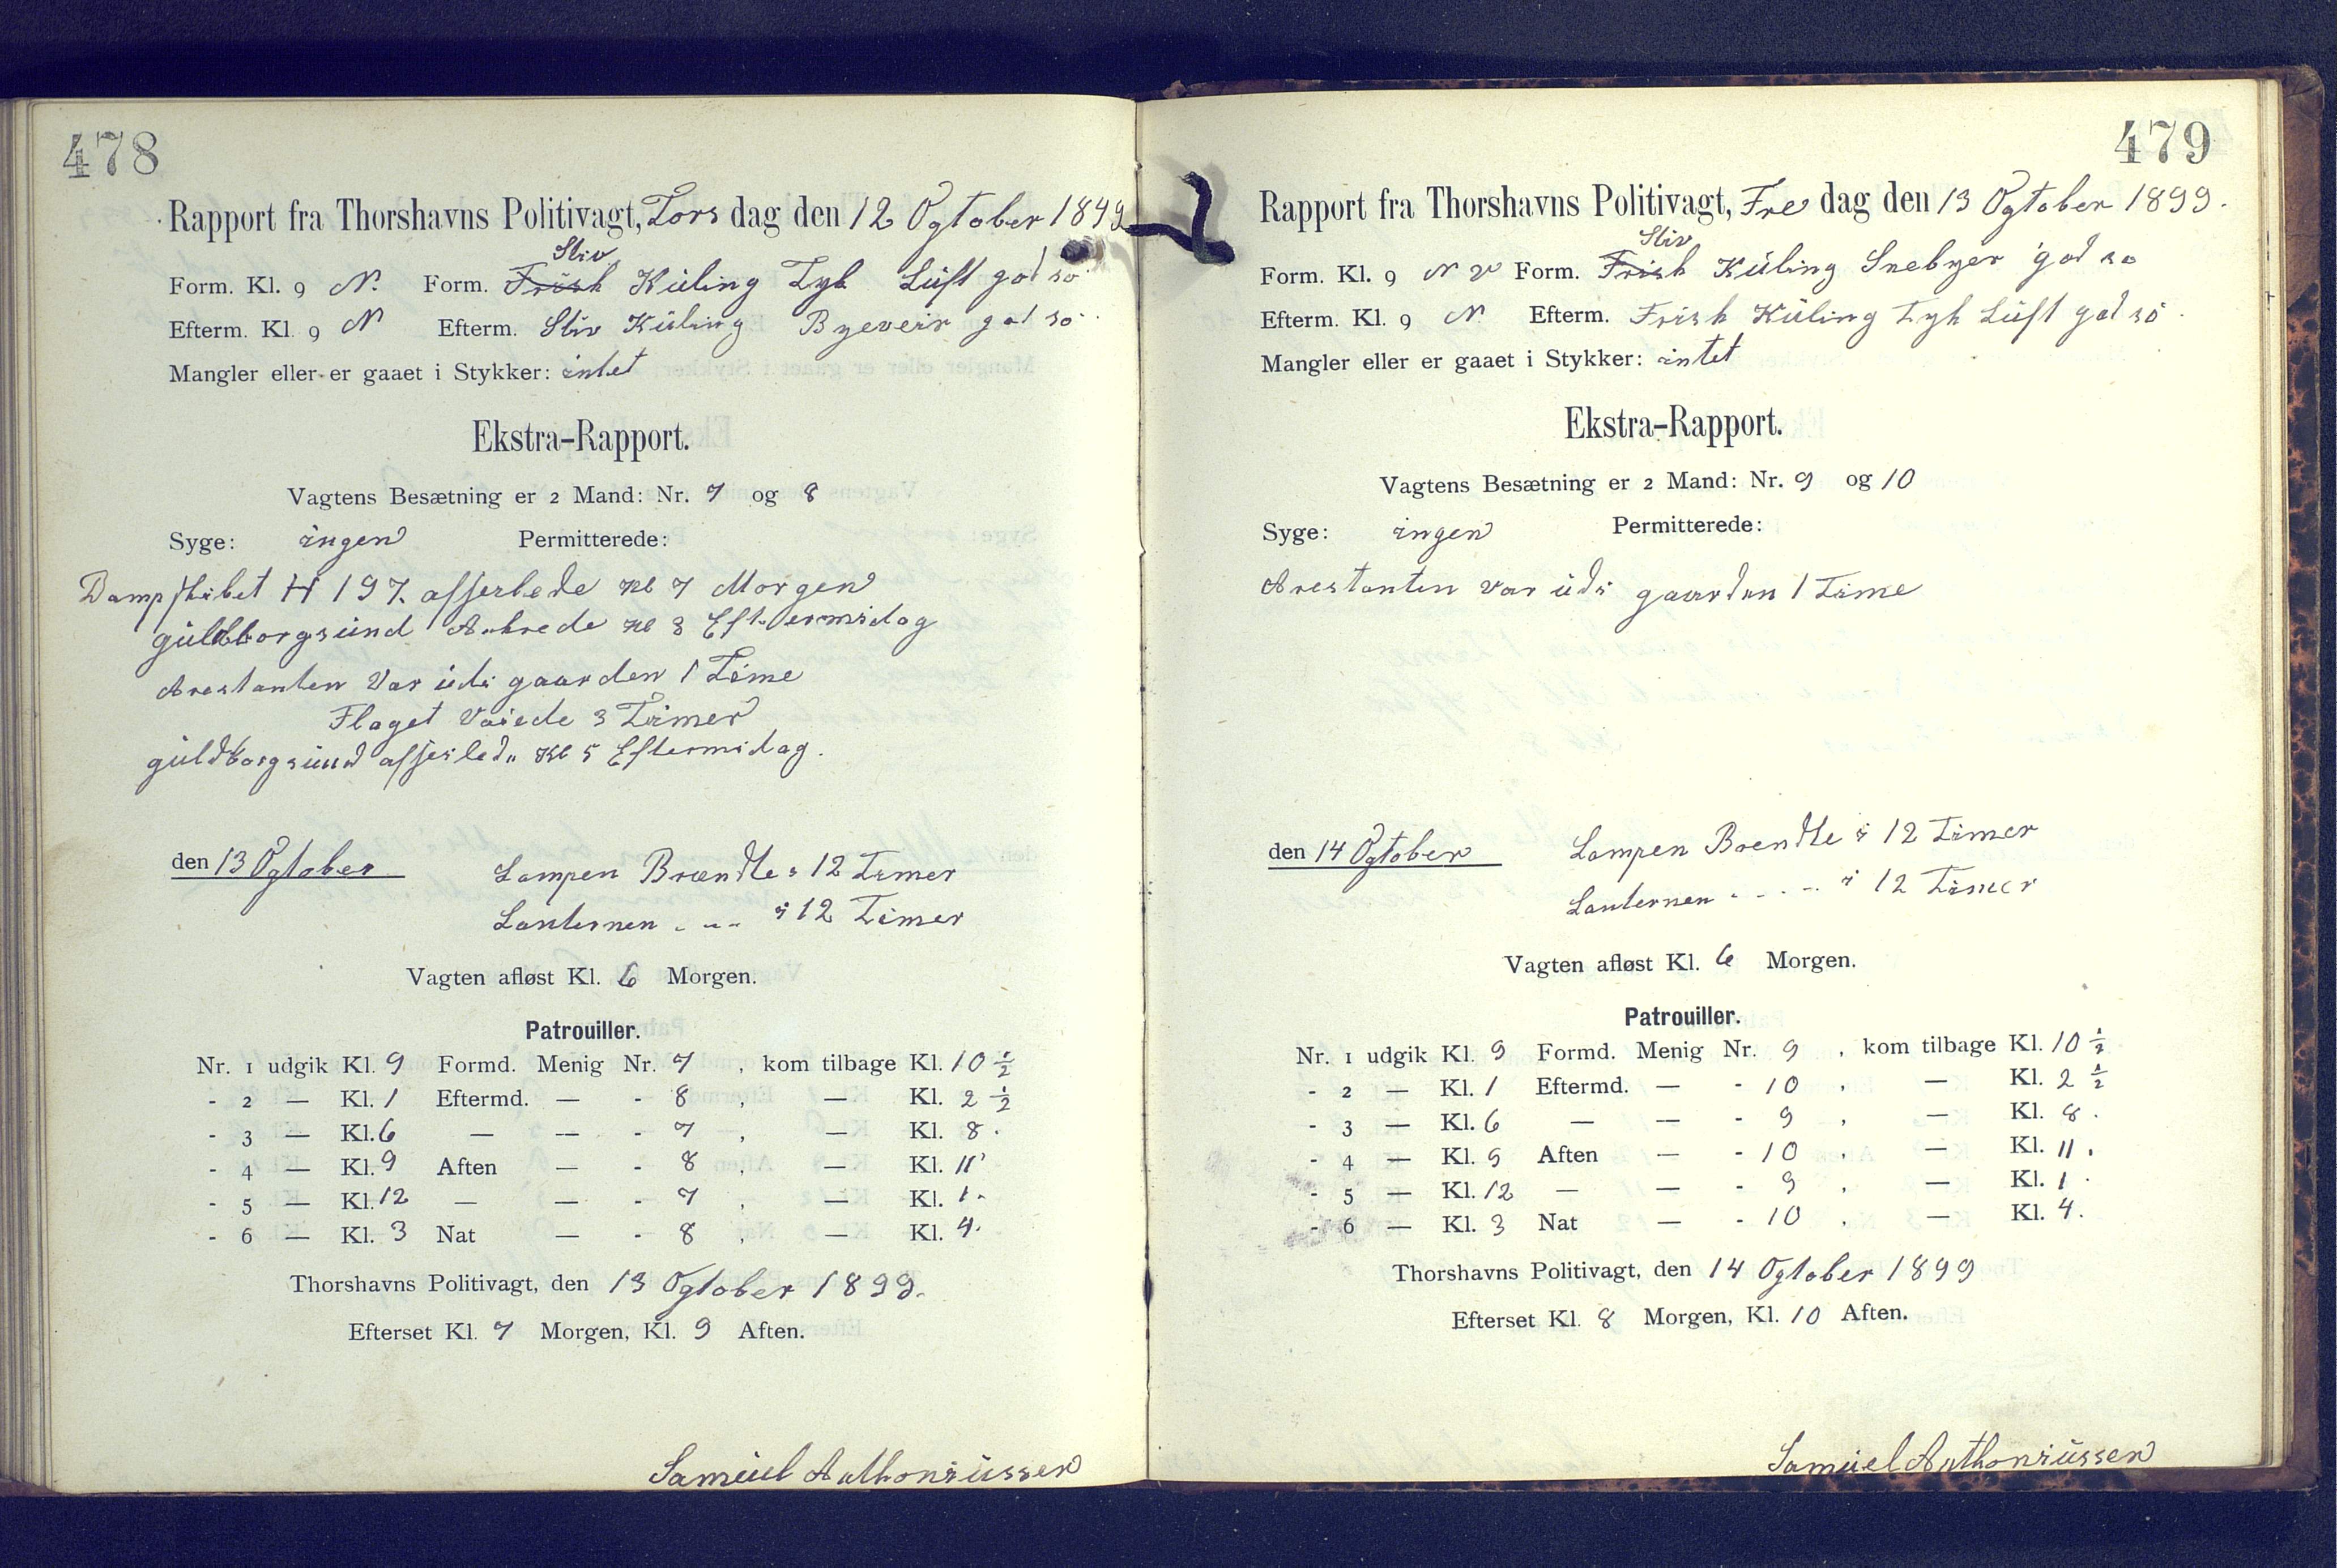 478
Rapport fra Thorshavns Politivagt, Tors dag den 12 Ogtober 1899
Stiv
Form. Kl. 9 N. Form. Frisk Küling Tyk Lüft god sö
Efterm. Kl. 9 N Efterm. Stiv Küling Byeveir god sö
Mangler eller er gaaet i Stykker: intet
Ekstra-Rapport.
Vagtens Besætning er 2 Mand: Nr. 7 og 8
Syge: ingen Permitterede:
Dampskibet H 197. afsjeslede Kl 7 Morgen
güldborgsünd Ankrede Kl 3 Eftermidag
Arestanten Var üdi gaarden 1 Time
Flaget Vaiede 3 Timer
güldborgsünd afsjesled. Kl 5 Eftermidag.
den 13 Ogtober Lampen Brændte i 12 Timer
Lanternen - - - i 12 Timer
Vagten afløst Kl. 6 Morgen.
Patrouiller.
Nr. 1 udgik Kl. 9 Formd. Menig Nr. 7 , kom tilbage Kl. 10 1/2
- 2 — Kl. 1 Eftermd. — - 8 , — Kl. 2 1/2
- 3 — Kl. 6 — — - 7 , — Kl. 8 .
- 4 — Kl. 9 Aften — - 8 , — Kl. 11
- 5 — Kl. 12 — — - 7 , — Kl. 1.
- 6 — Kl. 3 Nat — - 8 , — Kl. 4.
Thorshavns Politivagt, den 13 Ogtober 1899.
Efterset Kl. 7 Morgen, Kl. 9 Aften.
Samüel Anthoniüssen
479
Rapport fra Thorshavns Politivagt, Fre dag den 13 Ogtober 1899.
Stiv
Form. Kl. 9 N V Form. Frisk Küling Snebyer god so
Efterm. Kl. 9 N Efterm. Frisk Küling Tyk Lüft god sö
Mangler eller er gaaet i Stykker: intet
Ekstra-Rapport.
Vagtens Besætning er 2 Mand: Nr. 9 og 10
Syge: ingen Permitterede:
Arestanten Var üdi gaarden 1 Time
den 14 Ogtober Lampen Brendte i 12 Timer
Lanternen - - - - i 12 Timer
Vagten afløst Kl. 6 Morgen.
Patrouiller.
Nr. 1 udgik Kl. 9 Formd. Menig Nr. 9 , kom tilbage Kl. 10 1/2
- 2 — Kl. 1 Eftermd. — - 10 , — Kl. 2 1/2
- 3 — Kl. 6 — — - 9 , — Kl. 8 .
- 4 — Kl. 9 Aften — - 10 , — Kl. 11 .
- 5 — Kl. 12 — — - 9 , — Kl. 1 .
- 6 — Kl. 3 Nat — - 10 , — Kl. 4.
Thorshavns Politivagt, den 14 Ogtober 1899
Efterset Kl. 8 Morgen, Kl. 10 Aften.
Samüel Anthoniüssen